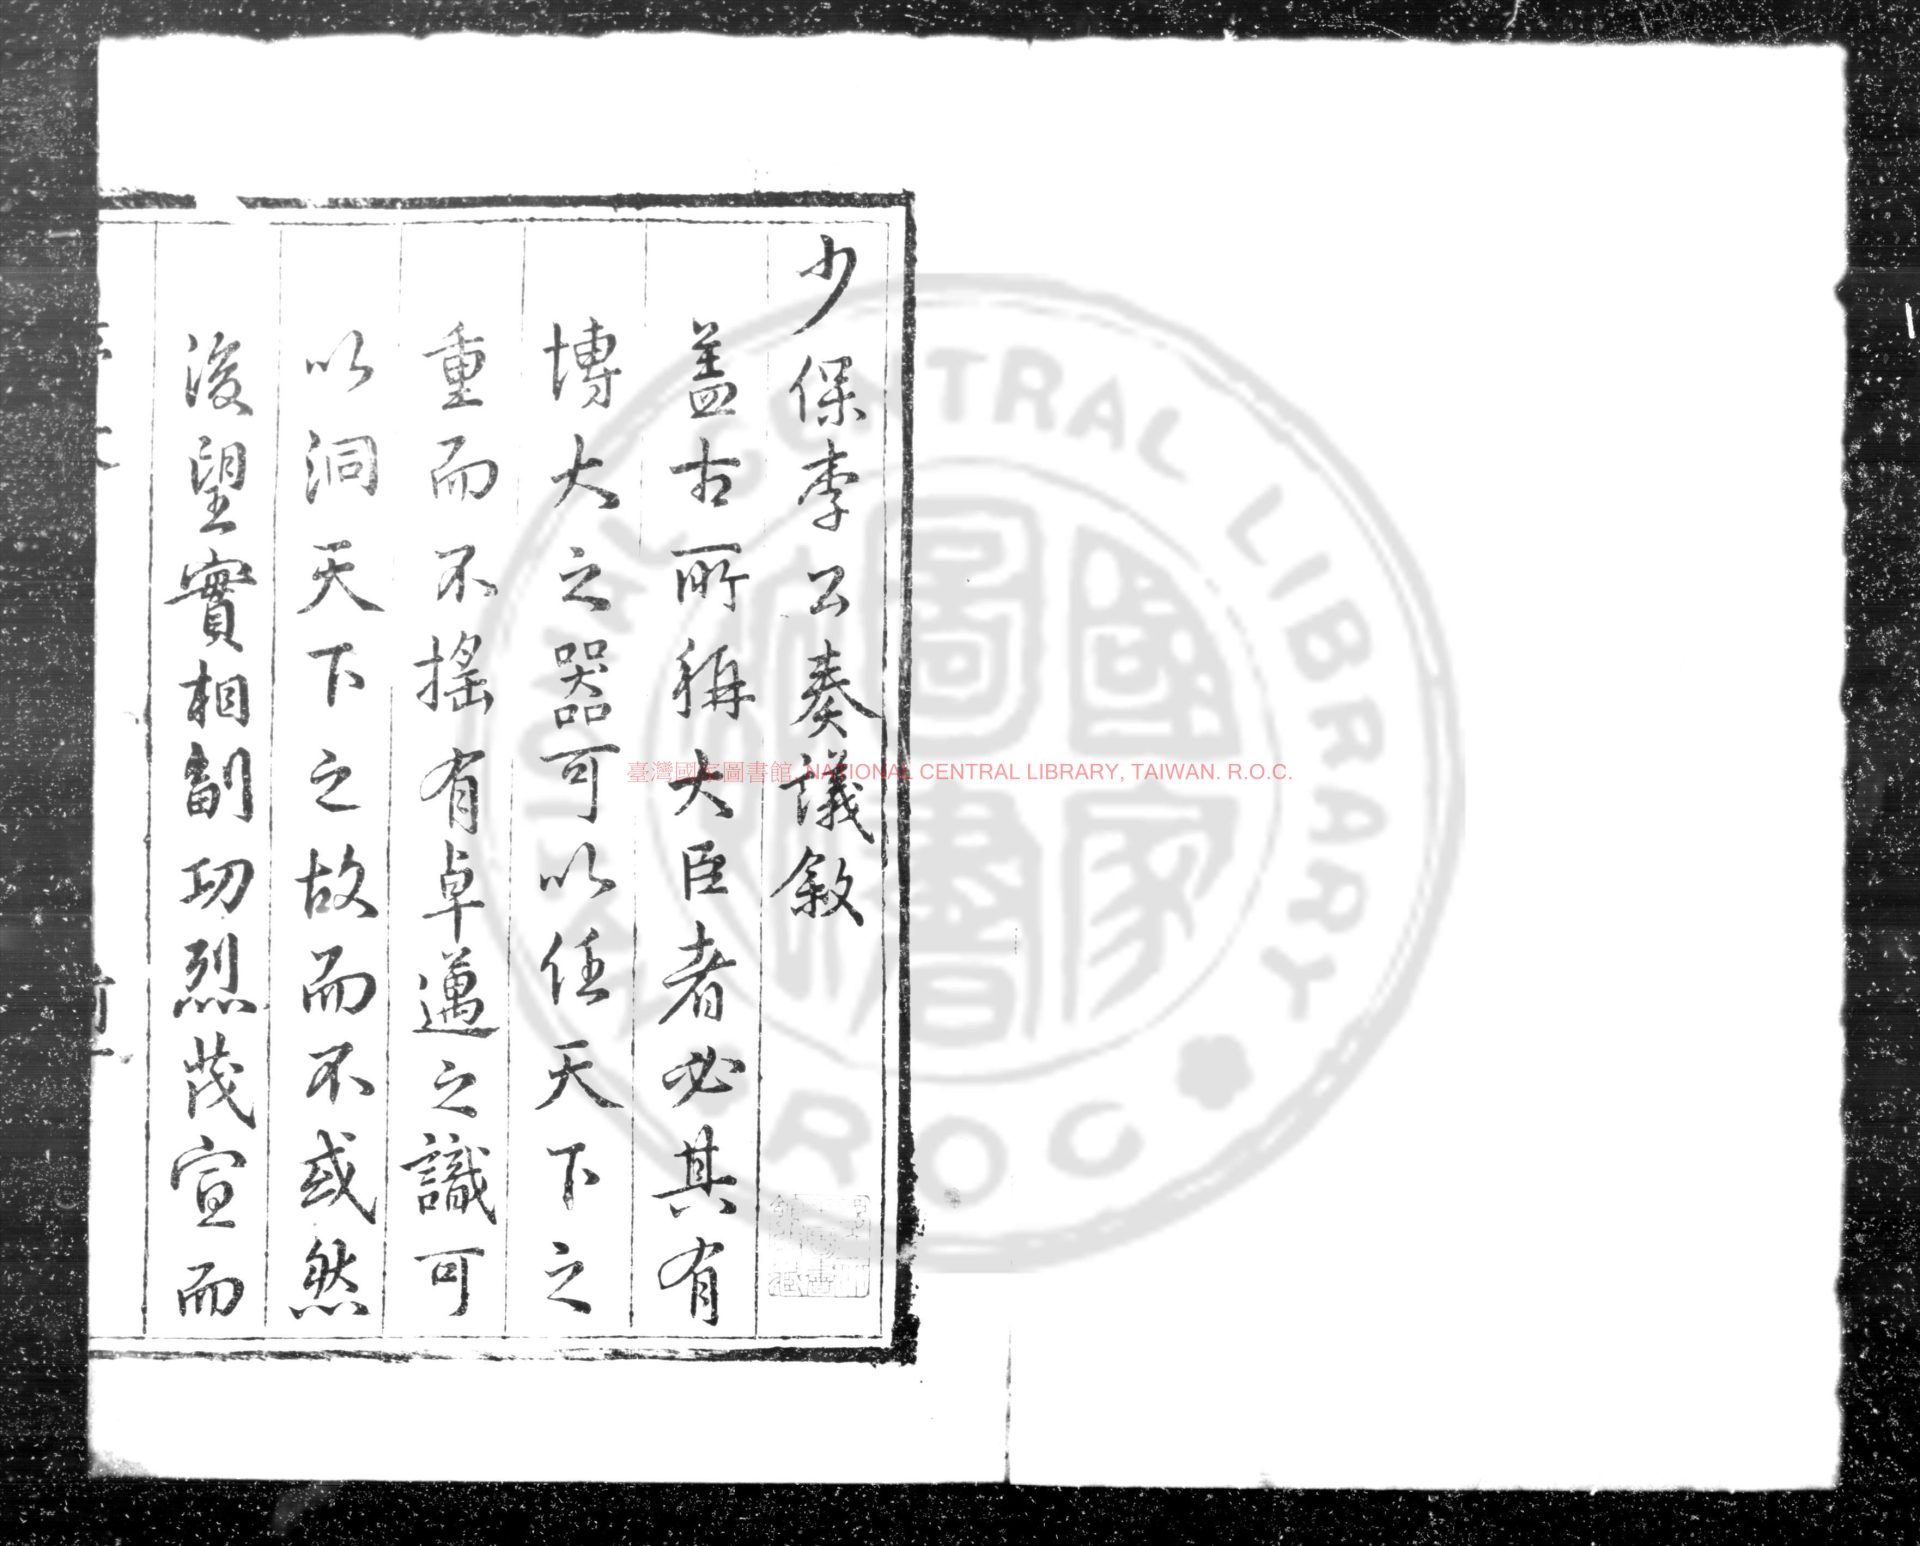 少保李公奏議敘
蓋古所稱大臣者必其有
博大之器可以任天下之
重而不搖有卓邁之識可
以洞天下之故而不惑然
後望實相副功烈茂宣而
臺灣國家圖書館, NATIONAL CENTRAL LIBRARY, TAIWAN. R.O.C.
NATIONAL CENTRAL LIBRARY
R O C
國家圖書